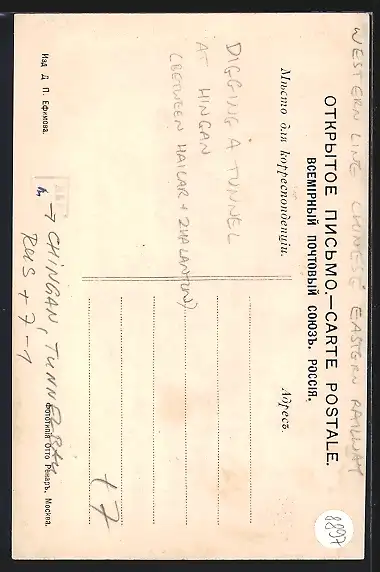 WESTERN LINE CHINESE EASTERN RAILWAY
ОТКРЫТОЕ ПИСЬМО.—CARTE POSTALE.
ВСЕМІРНЫЙ ПОЧТОВЫЙ СОЮЗЪ. РОССІЯ.
Мѣсто для корреспонденціи.
Адресъ.
DIGGING A TUNNEL
AT HINGAN
(BETWEEN HAILAR + ZHALANTUN)
→ CHINGAN, TUNNELBAU
RUS + 7 - 1
+7
Изд. Д. П. Ефимова.
Фототипія Отто Ренаръ, Москва.
8897